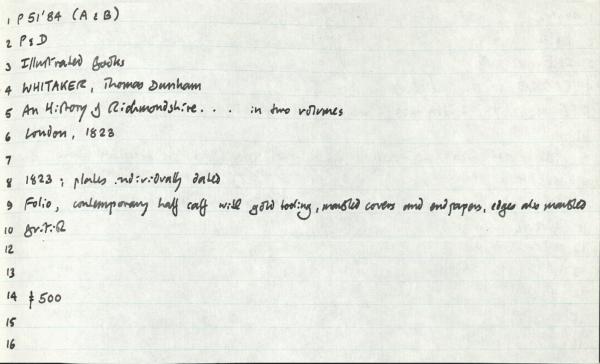 1 P 51'84 (A & B)
2 P & D
3 Illustrated Books
4 WHITAKER, Thomas Dunham
5 An History of Richmondshire . . . in two volumes
6 London, 1823
7
8 1823 ; plates individually dated
9 Folio, contemporary half calf with gold tooling, marbled covers and endpapers, edges also marbled
10 British
12
13
14 £500
15
16